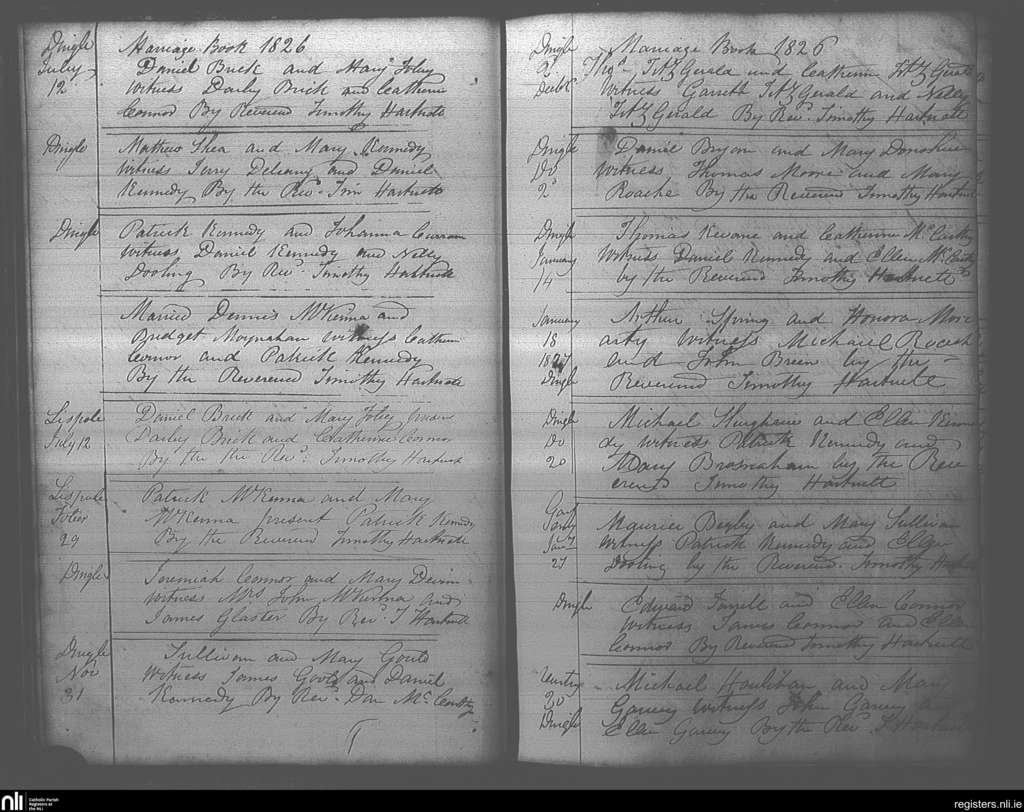 Dingle Marriage Book 1826
July Daniel Brick and Mary Foley
12 Witness Darby Brick and Catherine
Connor By Reverend Timothy Hartnete
Dingle Mathew Shea and Mary Kennedy
Witness Jerry Deleany and Daniel
Kennedy By the Revd. Tim Hartnete
Dingle Patrick Kennedy and Johanna Curran
witness Daniel Kennedy and Nelly
Dooling By Revd. Timothy Hartnete
Married Dennis McKenna and
Bridget Moynahan witness Cathern
Connor and Patrick Kennedy
By the Reverened Timothy Hartnete
Lispole Daniel Brick and Mary Foley
July 12 Darby Brick and Chatherine Connor
By the the Revd. Timothy Hartnete
Lispole Patrick McKenna and Mary
McKenna present Patrick Kennedy
29 By the Reverend Timothy Hartnete
Dingle Jeremiah Connor and Mary Devin
witness Mrs John McKenna and
James Glaster By Revd. T Hartnete
Dingle Sullivan and Mary Gould
Nov Witness James Goold and Daniel
31 Kennedy By Revd. Dan McCarthy
Dingle Marriage Book 1826
2d Thos. FitzGerald and Catherine FitzGerald
Decbr Witness Garrett FitzGerald and Nelly
FitzGerald By Revd. Timothy Hartnete
Dingle Daniel Bryan and Mary Donohue
Do Witness Thomas Moore and Mary
2d Roache By the Reverend Timothy Hartnete
Dingle Thomas Kevane and Catherine McCarthy
January Witness Daniel Kennedy and Ellen McCarthy
14 by the Reverend Timothy Hartnett
January Arthur Spring and Honora Mori
18 arty Witness Michael Roach
1827 and John Breen by the
Dingle Reverend Timothy Hartnett
Dingle Michael and Ellen Kenne
Do dy witness Patrick Kennedy and
20 Mary Brosnaham by the Reve
erend Timothy Hartnett
Maurice Begley and Mary Sullivan
Jany witness Patrick Kennedy and Ellen
27 Dooling by the Reverend Timothy Hartnett
Dingle Edward Farrell and Ellen Connor
Witness James Connor and Ellen
Connor By Reverend Timothy Hartnett
Ventry Michael Houlihan and Mary
20 Garvey witness John Garvey and
Dingle Ellen Garvey By the Revd. T Hartnett
nli Catholic Parish
Registers at
the NLI
registers.nli.ie